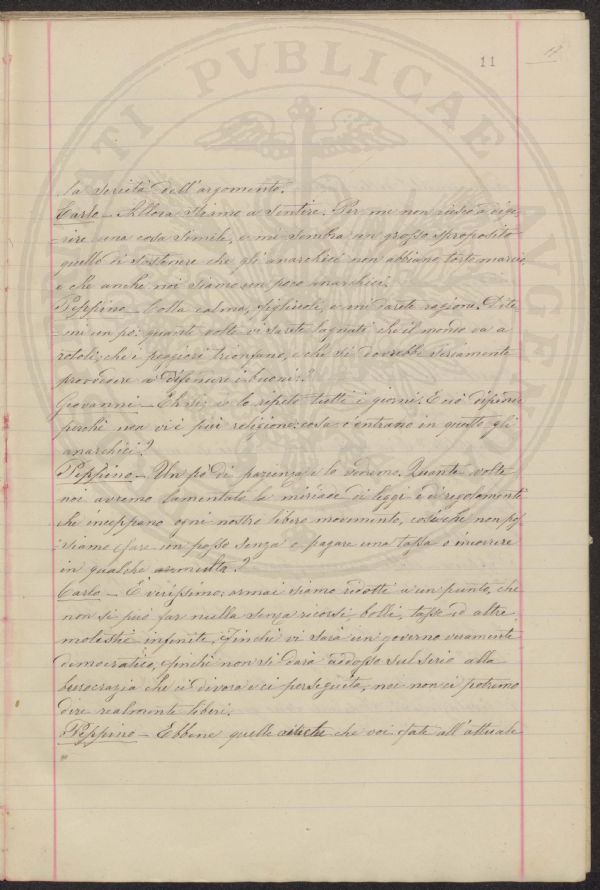 11
la serietà dell'argomento.
Carlo – Allora stiamo a sentire. Per me non riesco a dige-
rire una cosa simile, e mi sembra un grosso sproposito
quello di sostenere che gli anarchici non abbiano torto marcio,
e che anche noi siamo un poco anarchici.
Peppino – Colla calma, figliuoli, e mi darete ragione. Dite-
mi un po': quante volte vi sarete lagnati che il mondo va a
rotoli, che i peggiori trionfano, e che si dovrebbe seriamente
provvedere a difendere i buoni?
Giovanni – Eh sì; io lo ripeto tutti i giorni. E ciò dipende
perchè non vi è più religione: cosa c'entrano in questo gli
anarchici?
Peppino – Un po' di pazienza e lo vedremo. Quante volte
noi avremo lamentato la miriade di leggi e di regolamenti
che inceppano ogni nostro libero movimento, cosicchè non pos-
siamo fare un passo senza o pagare una tassa o incorrere
in qualche multa?
Carlo – È verissimo; ormai siamo ridotti a un punto, che
non si può far nulla senza ricorsi, bolli, tasse ed altre
molestie infinite. Finchè vi sarà un governo veramente
democratico, finchè non si darà addosso sul serio alla
burocrazia che ci divora e ci perseguita, noi non ci potremo
dire realmente liberi.
Peppino – Ebbene quelle critiche che voi fate all'attuale
PVBLICAE